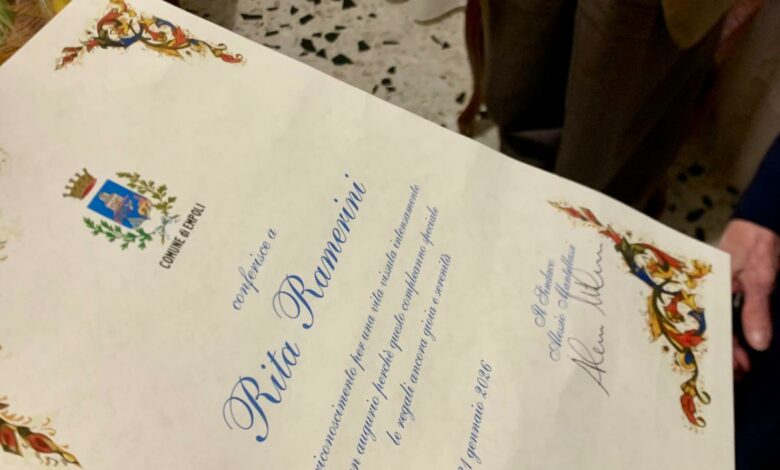 COMUNE di EMPOLI
conferisce a
Rita Ramerini
riconoscimento per una vita vissuta intensamente
un augurio perchè questo compleanno speciale
le regali ancora gioia e serenità
21 gennaio 2026
Il Sindaco
Alessio Mantellassi